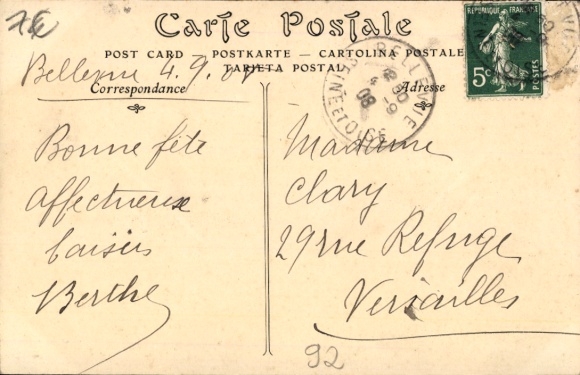 7€
Carte Postale
POST CARD – POSTKARTE – CARTOLINA POSTALE
TARJETA POSTAL
Bellevue 4.9.08
Correspondance
Adresse
BELLEVUE
SEINE ET OISE
4 -9
08
REPUBLIQUE FRANÇAISE
5c
POSTES
Bonne fête
affectueux
baisers
Berthe
Madame
Clary
29 rue Refuge
Versailles
92